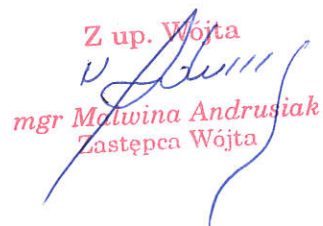 Z up. Wójta
mgr Malwina Andrusiak
Zastępca Wójta